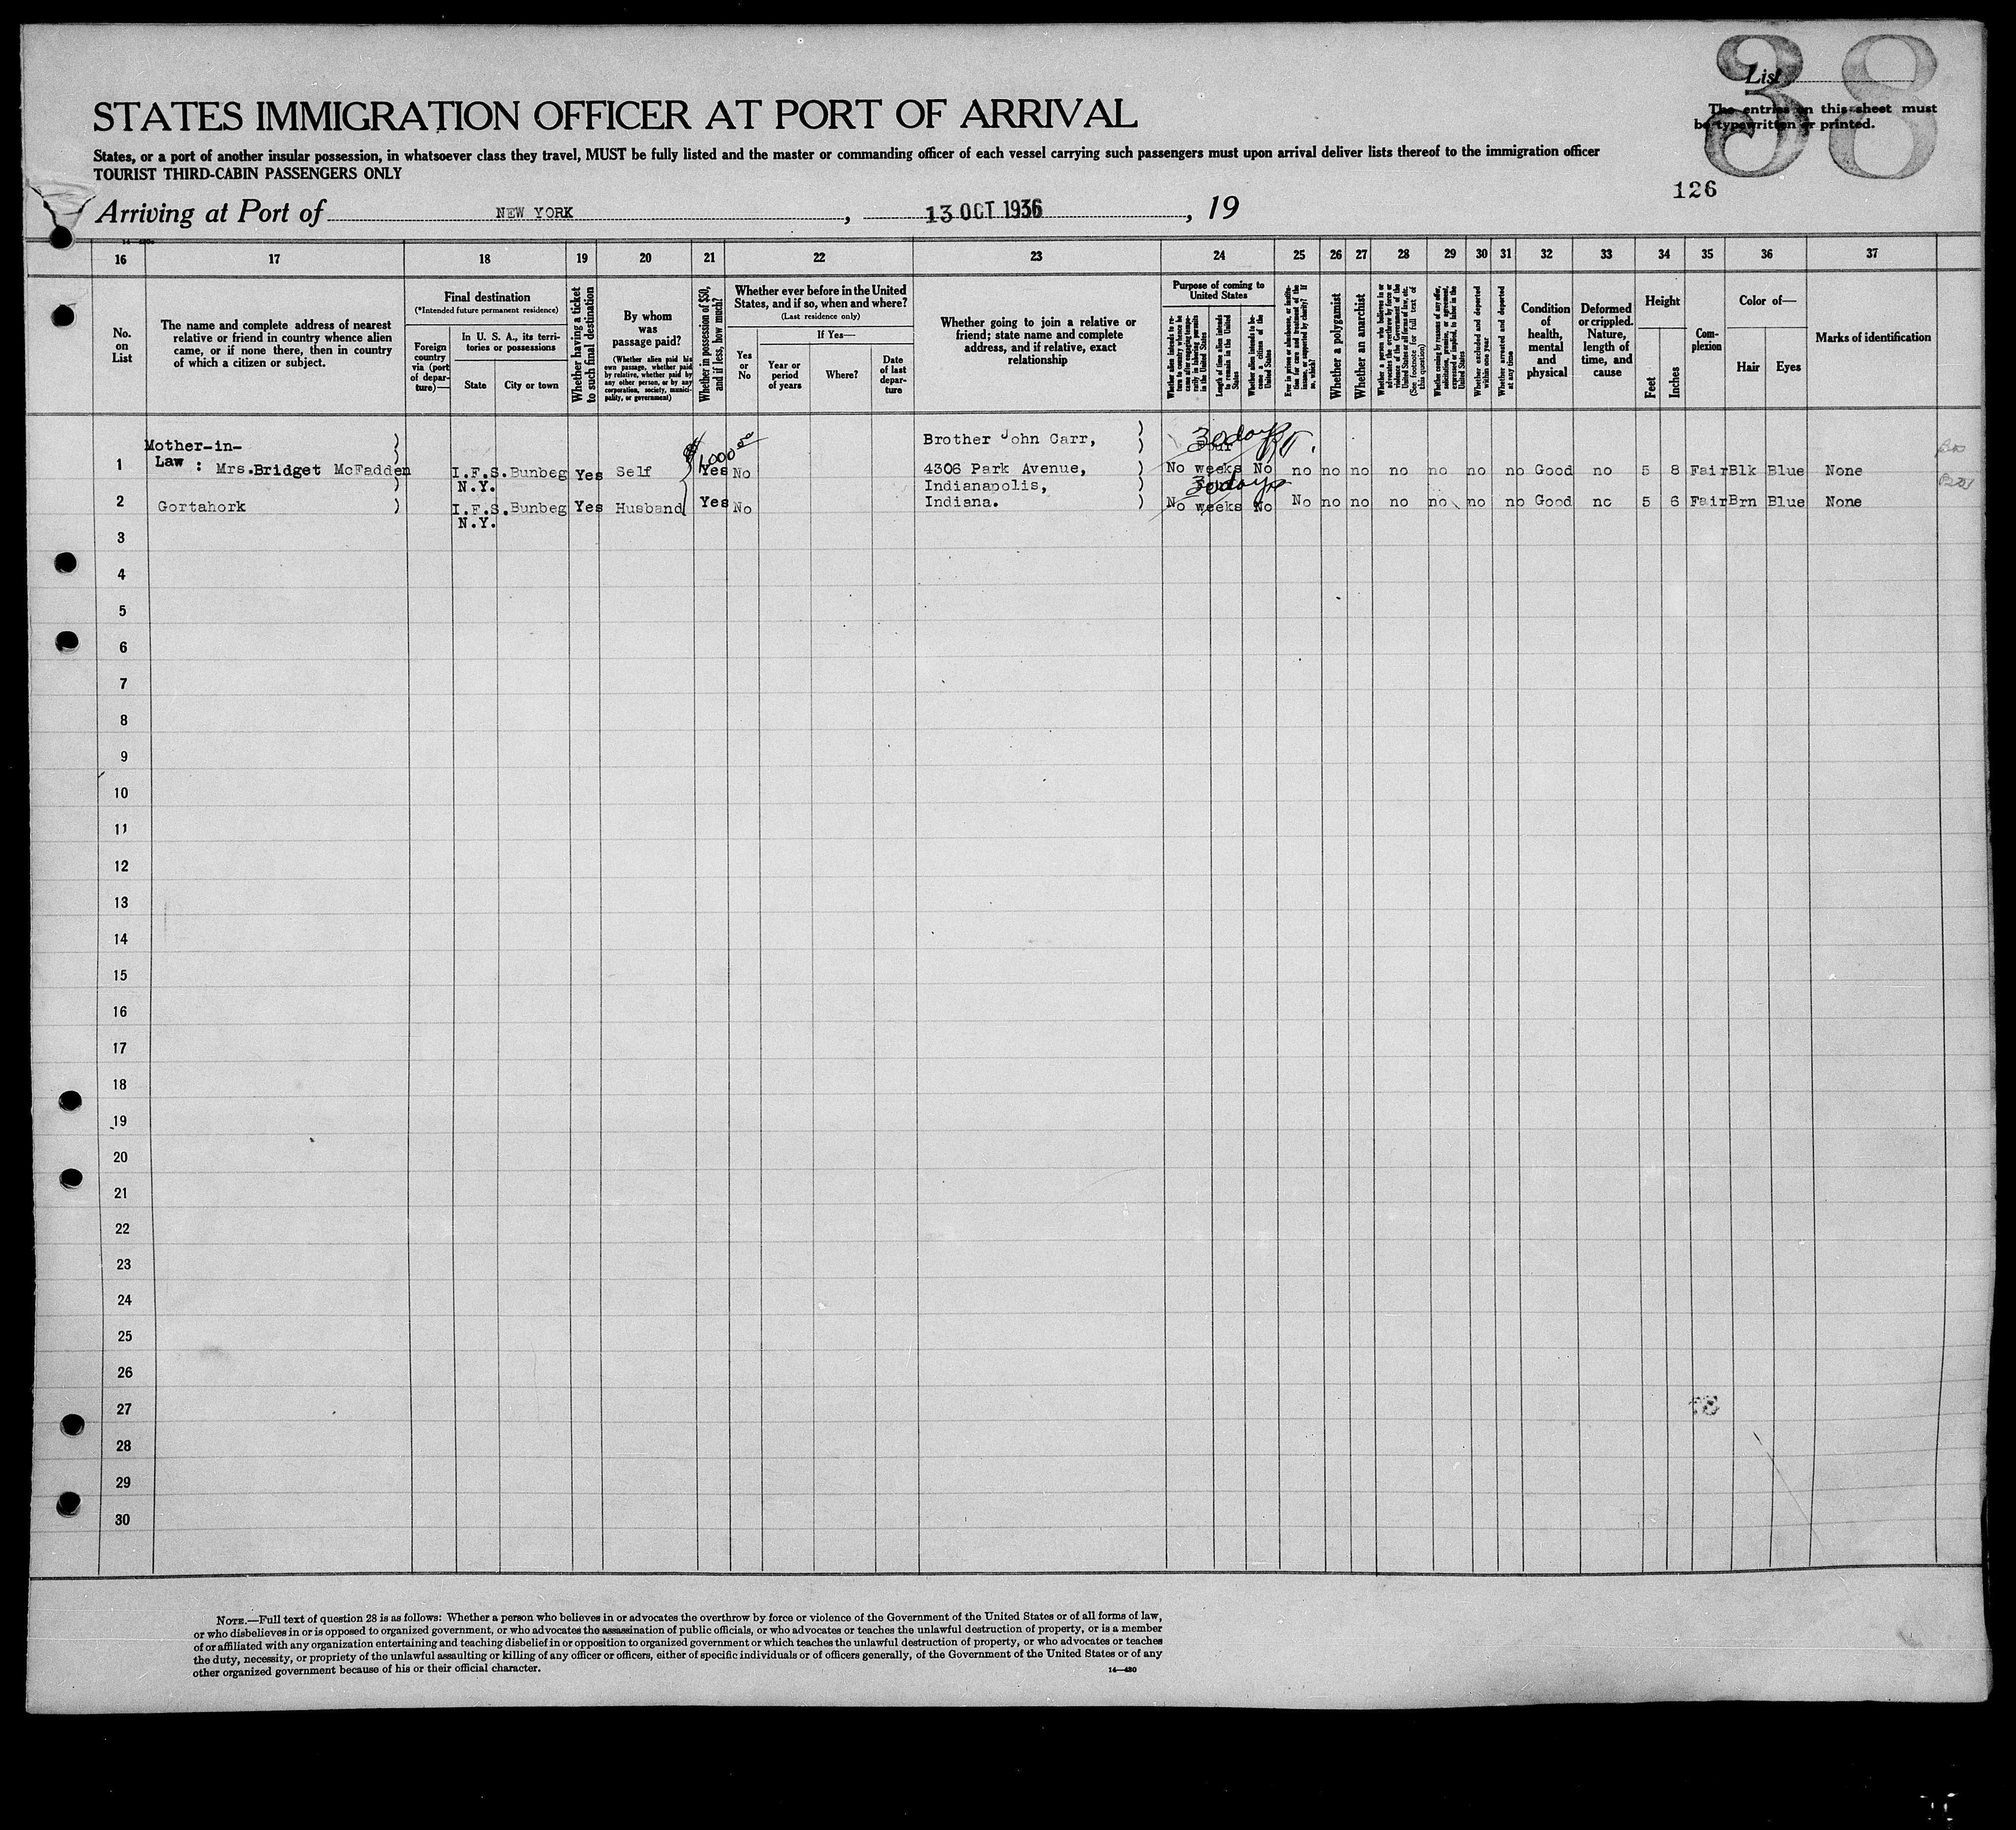 38
List
The entries on this sheet must
be typewritten or printed.
STATES IMMIGRATION OFFICER AT PORT OF ARRIVAL
States, or a port of another insular possession, in whatsoever class they travel, MUST be fully listed and the master or commanding officer of each vessel carrying such passengers must upon arrival deliver lists thereof to the immigration officer
TOURIST THIRD-CABIN PASSENGERS ONLY
126
Arriving at Port of NEW YORK, 13 OCT 1936, 19
16 17 18 19 20 21 22 23 24 25 26 27 28 29 30 31 32 33 34 35 36 37
No.
on
List
The name and complete address of nearest
relative or friend in country whence alien
came, or if none there, then in country
of which a citizen or subject.
Final destination
(*Intended future permanent residence)
Foreign
country
via (port
of depar-
ture)—
In U. S. A., its terri-
tories or possessions
State
City or town
Whether having a ticket
to such final destination
By whom
was
passage paid?
(Whether alien paid his
own passage, whether paid
by relative, whether paid by
any other person, or by any
corporation, society, munici-
pality, or government)
Whether in possession of $50,
and if less, how much?
Whether ever before in the United
States, and if so, when and where?
(Last residence only)
Yes
or
No
If Yes—
Year or
period
of years
Where?
Date
of last
depar-
ture
Whether going to join a relative or
friend; state name and complete
address, and if relative, exact
relationship
Purpose of coming to
United States
Whether alien intends to re-
turn to country whence he
came after engaging tempo-
rarily in laboring pursuits
in the United States
Length of time alien intends
to remain in the United
States
Whether alien intends to be-
come a citizen of the
United States
Ever in prison or almshouse, or institu-
tion for care and treatment of the
insane, or supported by charity? If
so, which?
Whether a polygamist
Whether an anarchist
Whether a person who believes in or
advocates the overthrow by force or
violence of the Government of the
United States or all forms of law, etc.
(See footnote for full text of
this question)
Whether coming by reasons of any offer,
solicitation, promise, or agreement,
expressed or implied, to labor in the
United States
Whether excluded and deported
within one year
Whether arrested and deported
at any time
Condition
of
health,
mental
and
physical
Deformed
or crippled.
Nature,
length of
time, and
cause
Height
Feet
Inches
Com-
plexion
Color of—
Hair
Eyes
Marks of identification
Mother-in- ) $1000 00 Brother John Carr, ) 30 days
1 Law : Mrs. Bridget McFadden I.F.S. Bunbeg Yes Self Yes No 4306 Park Avenue, ) No weeks No no no no no no no no Good no 5 8 Fair Blk Blue None
N.Y. Indianapolis, ) 30 days
2 Gortahork ) I.F.S. Bunbeg Yes Husband Yes No Indiana. ) No weeks No No no no no no no no Good no 5 6 Fair Brn Blue None
N.Y.
3
4
5
6
7
8
9
10
11
12
13
14
15
16
17
18
19
20
21
22
23
24
25
26
27
28
29
30
NOTE.—Full text of question 28 is as follows: Whether a person who believes in or advocates the overthrow by force or violence of the Government of the United States or of all forms of law,
or who disbelieves in or is opposed to organized government, or who advocates the assassination of public officials, or who advocates or teaches the unlawful destruction of property, or is a member
of or affiliated with any organization entertaining and teaching disbelief in or opposition to organized government or which teaches the unlawful destruction of property, or who advocates or teaches
the duty, necessity, or propriety of the unlawful assaulting or killing of any officer or officers, either of specific individuals or of officers generally, of the Government of the United States or of any
other organized government because of his or their official character.
14—480